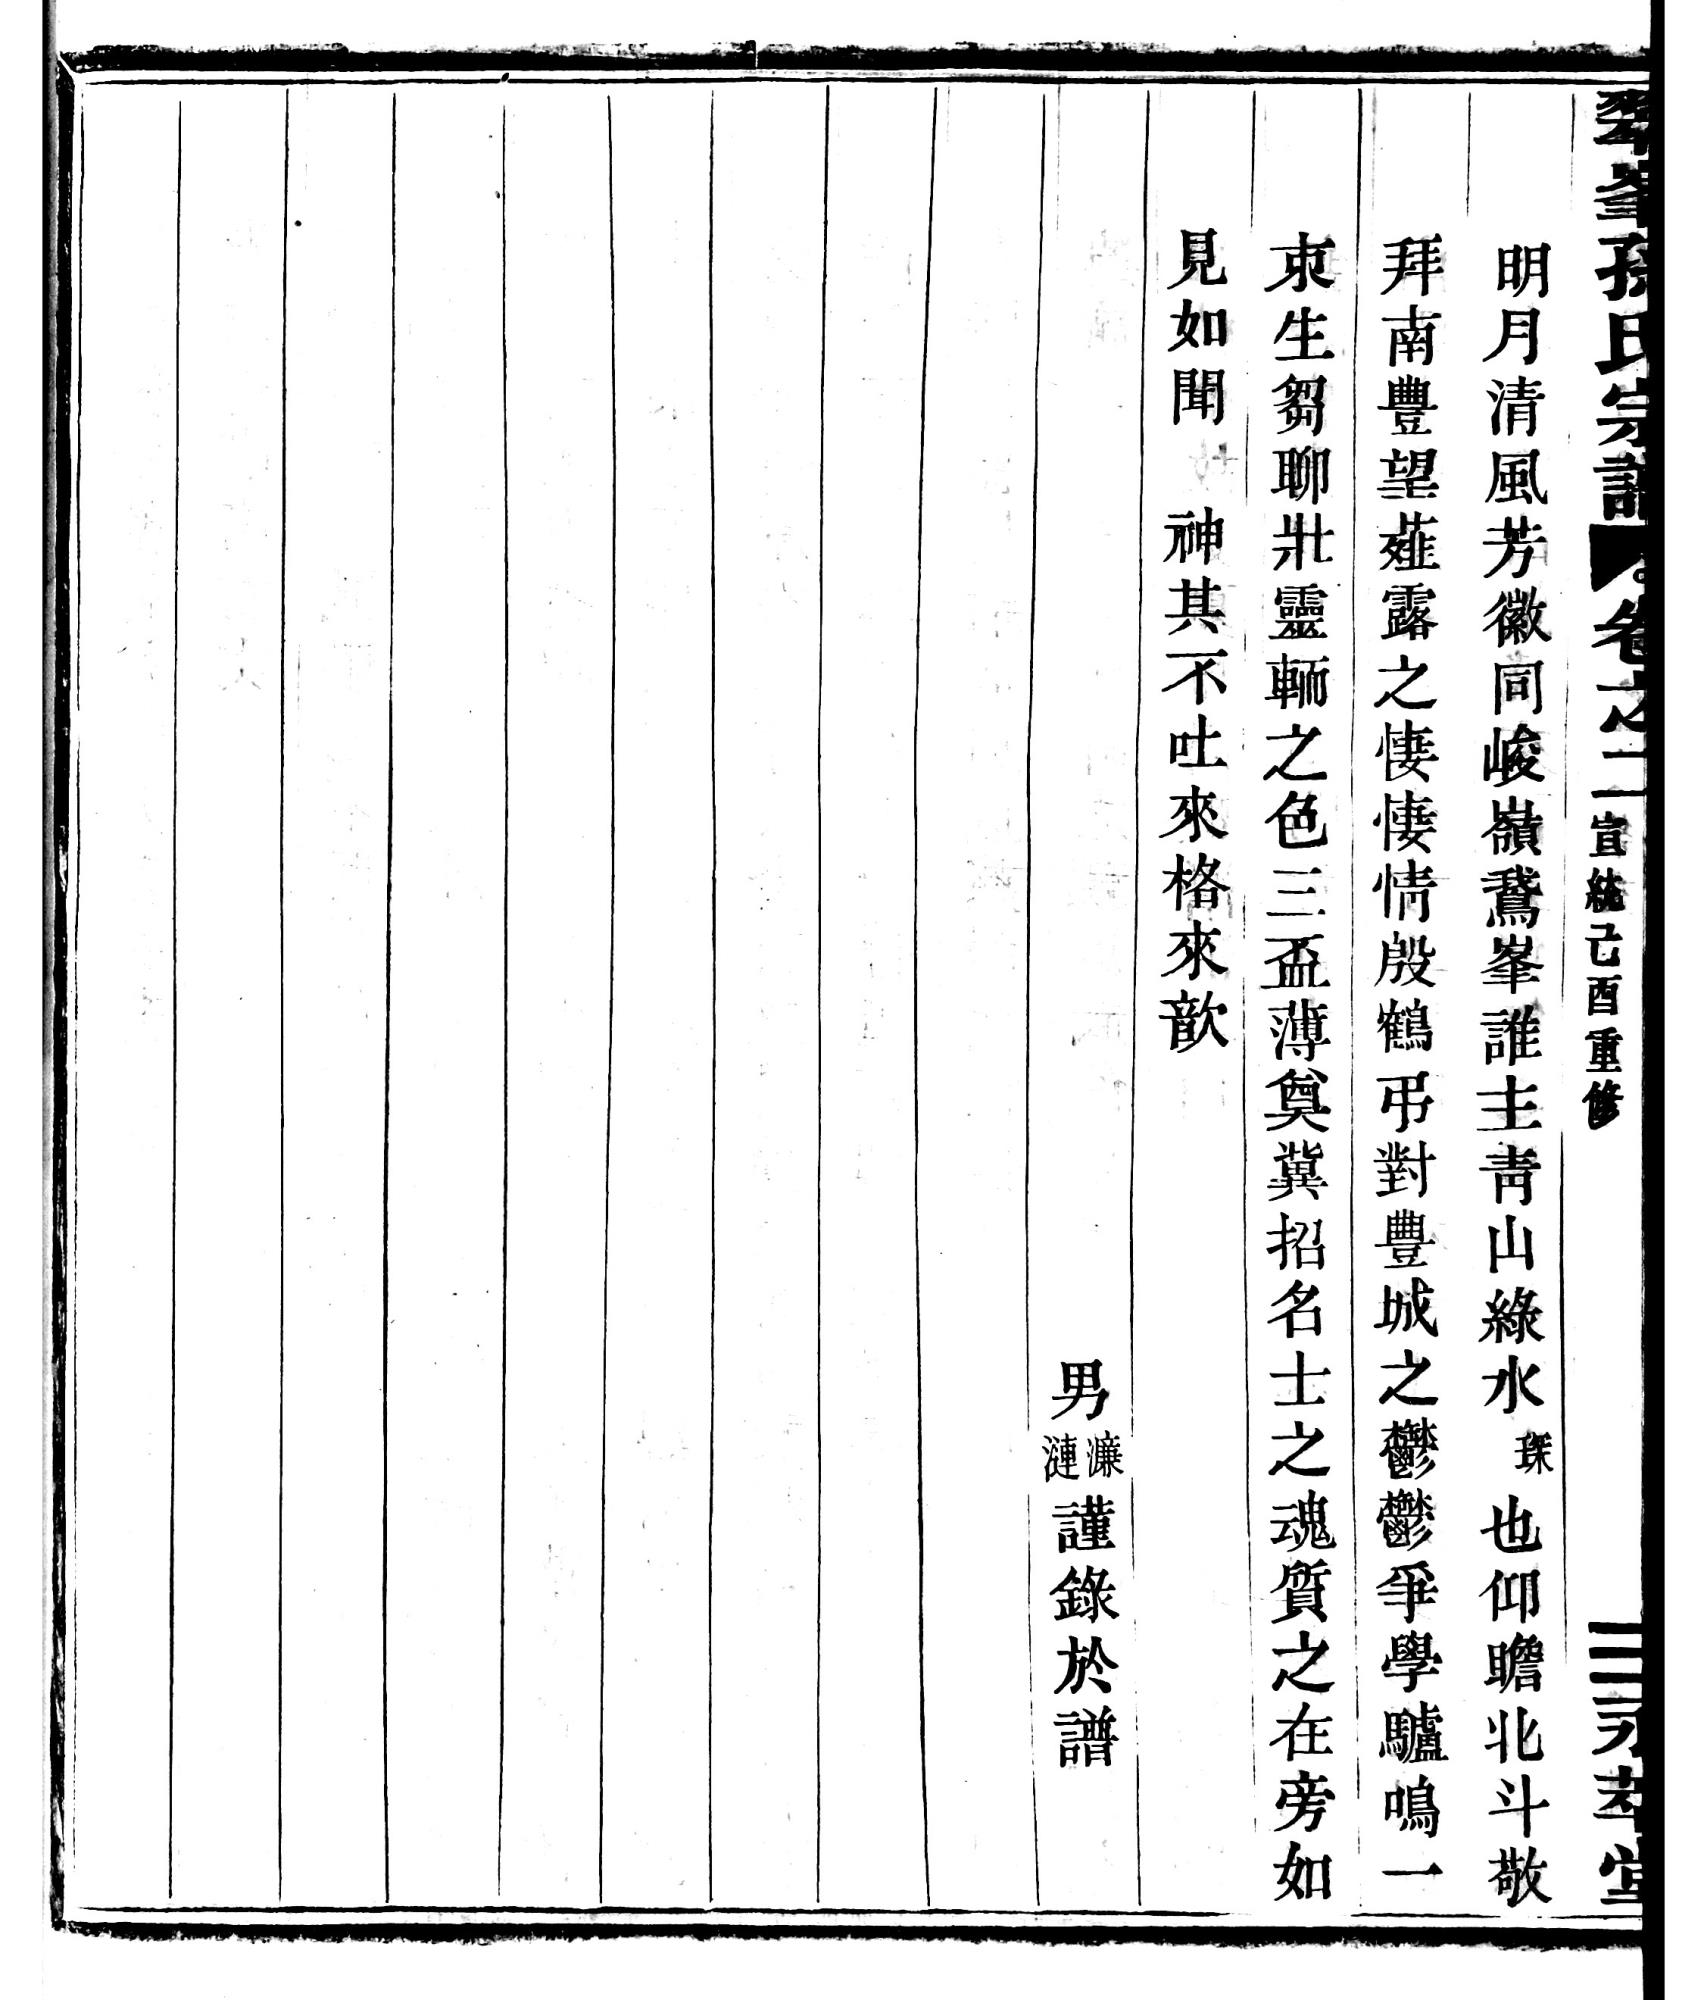 孫氏宗譜 卷之二 宣統己酉重修 三 永萃堂
明月清風芳徽同峻嶺鵞峯誰主靑山綠水琛也仰瞻北斗敬
拜南豐望薤露之悽悽情殷鶴弔對豐城之鬱鬱爭學驢鳴一
束生芻聊壯靈輀之色三盃薄奠冀招名士之魂質之在旁如
見如聞 神其不吐來格來歆
男濂漣謹錄於譜